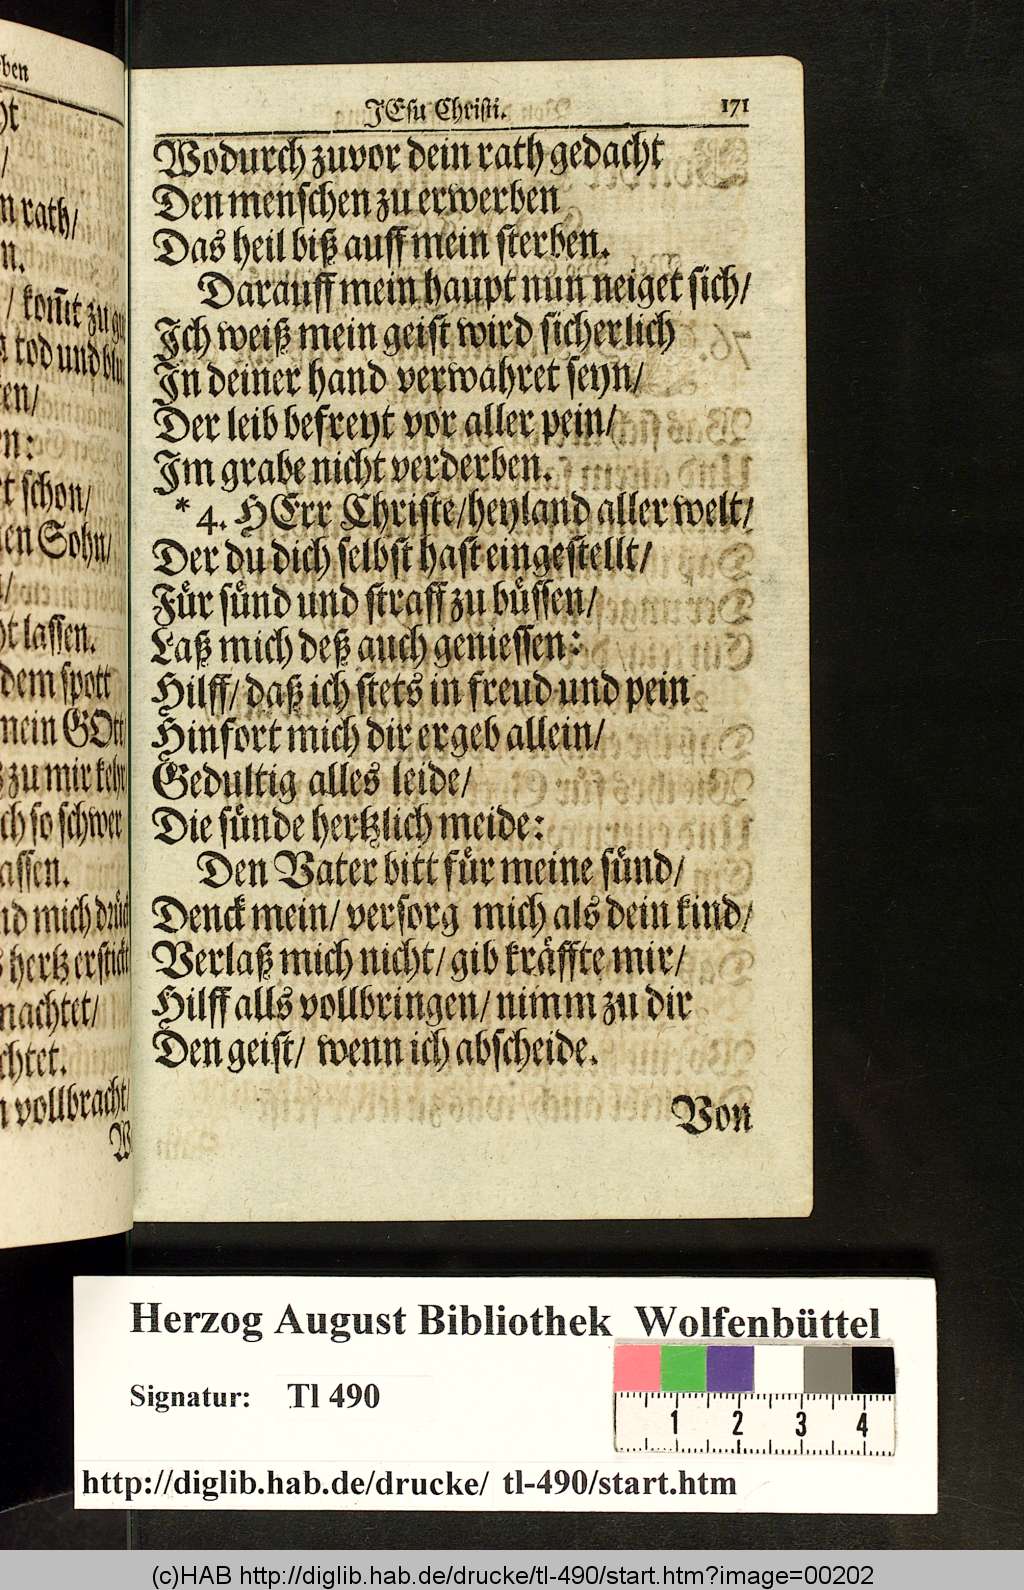 eben
n rath/
n.
/ kom̃t zu
tod und blu
en/
en:
t schon/
en Sohn/
ht lassen.
dem spott
mein GOtt
zu mir kehr
ch so schwer
assen.
nd mich drück
hertz erstickt
machtet/
chtet.
vollbracht/
W
JEsu Christi. 171
Wodurch zuvor dein rath gedacht
Den menschen zu erwerben
Das heil biß auff mein sterben.
Darauff mein haupt nun neiget sich/
Ich weiß mein geist wird sicherlich
In deiner hand verwahret seyn/
Der leib befreyt vor aller pein/
Im grabe nicht verderben.
* 4. HErr Christe/heyland aller welt/
Der du dich selbst hast eingestellt/
Für sünd und straff zu büssen/
Laß mich deß auch geniessen:
Hilff/ daß ich stets in freud und pein
Hinfort mich dir ergeb allein/
Gedultig alles leide/
Die sünde hertzlich meide:
Den Vater bitt für meine sünd/
Denck mein/ versorg mich als dein kind/
Verlaß mich nicht/ gib kräffte mir/
Hilff alls vollbringen/ nimm zu dir
Den geist/ wenn ich abscheide.
Von
Herzog August Bibliothek Wolfenbüttel
Signatur: Tl 490
1 2 3 4
http://diglib.hab.de/drucke/ tl-490/start.htm
(c)HAB http://diglib.hab.de/drucke/tl-490/start.htm?image=00202